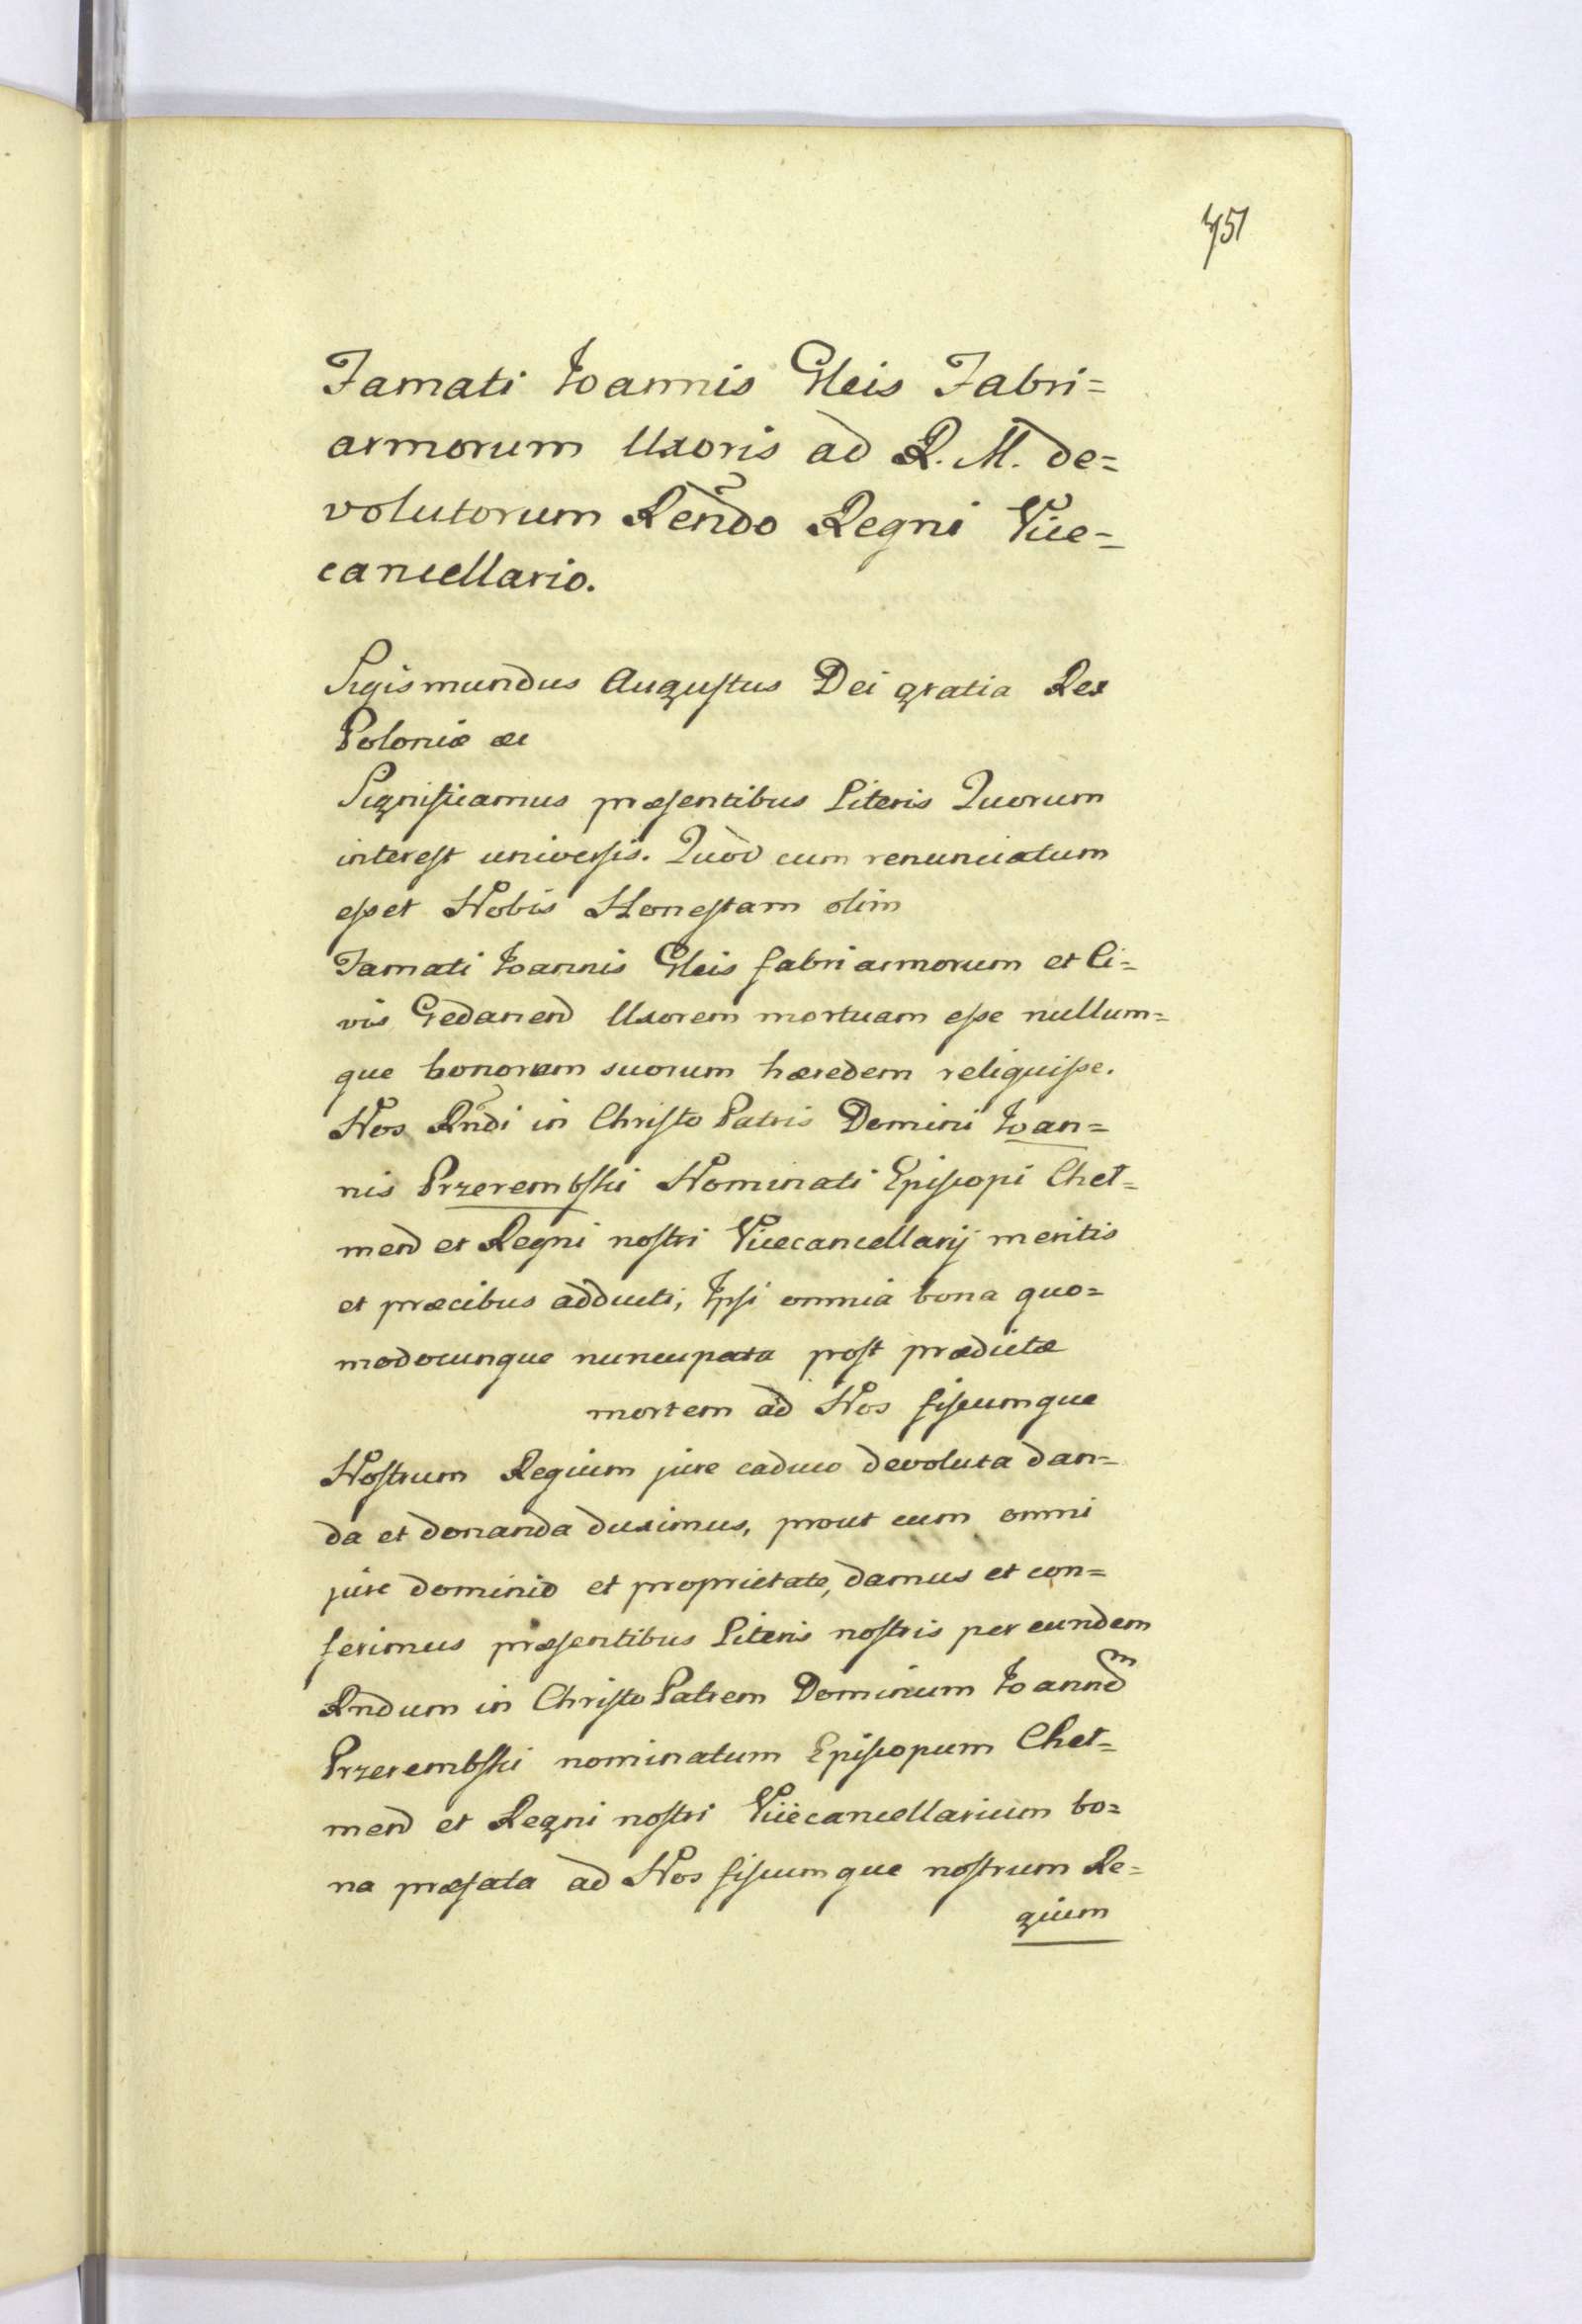 751
Famati Joannis Gleis Fabri=
armorum Uxoris ad R. M. de=
volutorum Rendo Regni Vice=
cancellario.
Sigismundus Augustus Dei gratia Rex
Poloniæ æc
Significamus præsentibus Literis Quorum
interest universis. Quòd cum renunciatum
esset Nobis Honestam olim
Famati Joannis Gleis fabri armorum et Ci=
vis Gedanend Uxorem mortuam esse nullum=
que bonorum suorum hæredem reliquisse.
Nos Rndi in Christo Patris Domini Joan=
nis Przerembski Nominati Episcopi Cheł=
mend et Regni nostri Vicecancellarij meritis
et præcibus adducti, Ipsi omnia bona quo=
modocunque nuncupata post prædictæ
mortem ad Nos fiscumque
Nostrum Regium jure caduco devoluta dan=
da et donanda duximus, prout cum omni
jure dominio et proprietate, damus et con=
ferimus præsentibus Literis nostris per eundem
Rndum in Christo Patrem Dominum Joannem
Przerembski nominatum Episcopum Cheł=
mend et Regni nostri Vicecancellarium bo=
na præfata ad Nos fiscumque nostrum Re=
gium